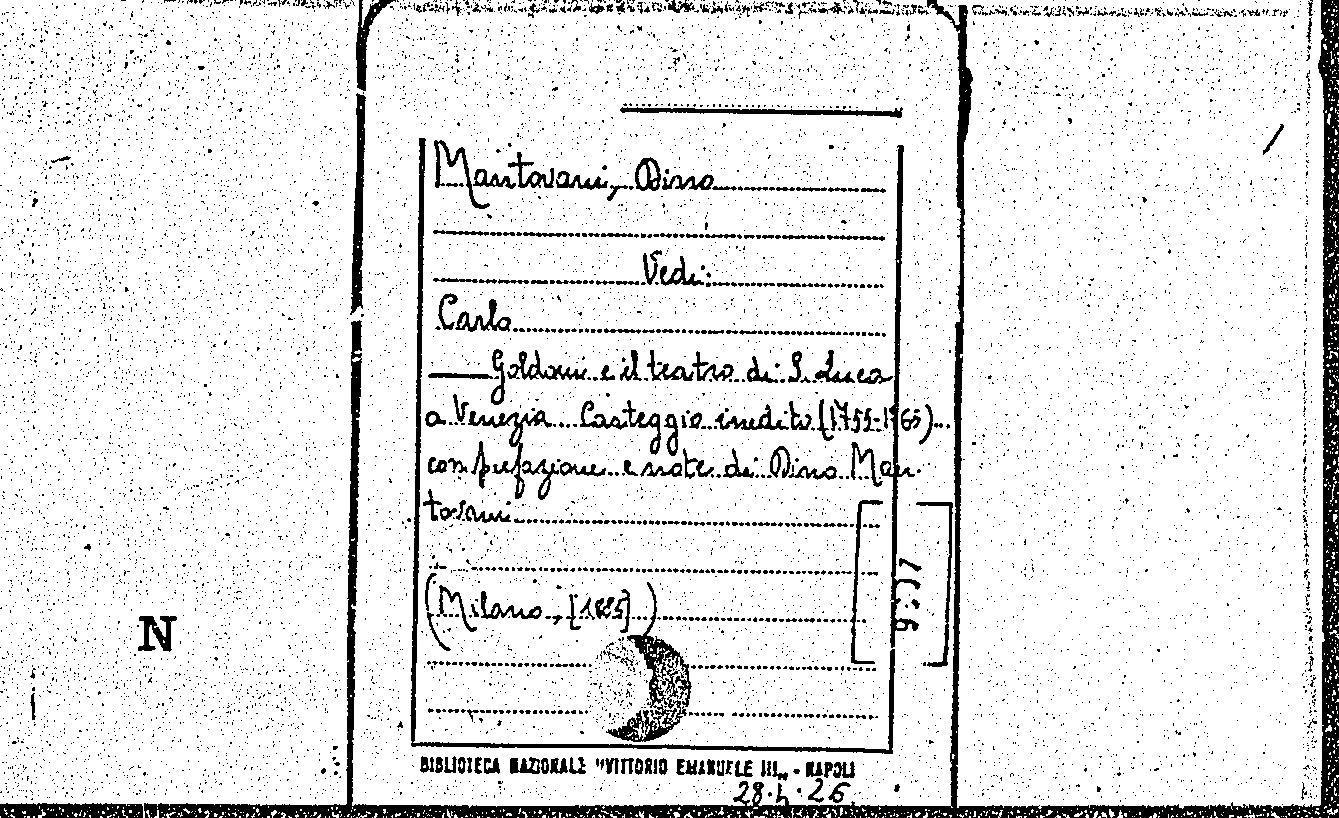 Mantovani, Dino
Vedi:
Carlo
Goldoni e il teatro di S. Luca
a Venezia. Carteggio inedito (1755-1765)...
con prefazione e note di Dino Man-
tovani
(Milano, [1885])
N
BIBLIOTECA NAZIONALE "VITTORIO EMANUELE III" - NAPOLI
28.4.26